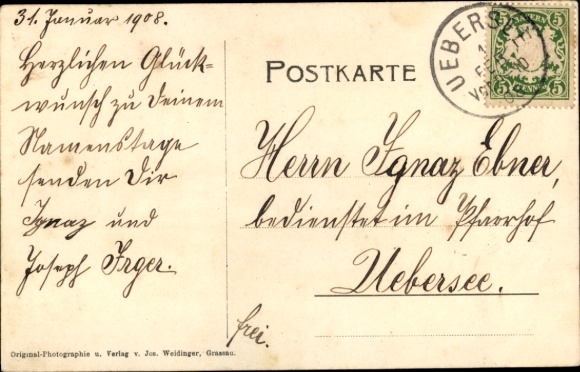 31. Januar 1908.
Herzlichen Glück-
wunsch zu Deinem
Namenstage
senden Dir
Ignaz und
Joseph Irger.
POSTKARTE
UEBERSEE
5
5
5
5
Herrn Ignaz Ebner,
bedienstet im Pfarrhof
Uebersee.
frei.
Original-Photographie u. Verlag v. Jos. Weidinger, Grassau.